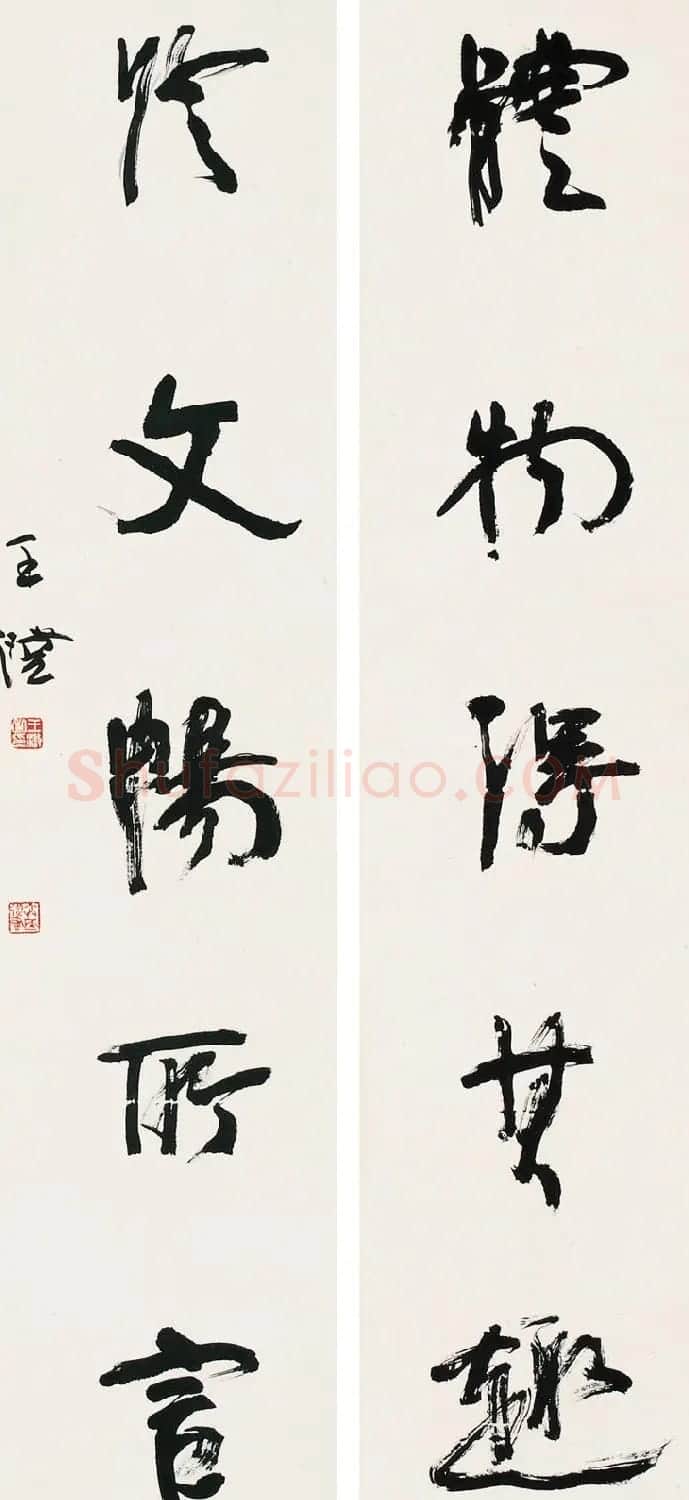 體物得其趣
於文暢所言
王澄
Shufaziliao.COM